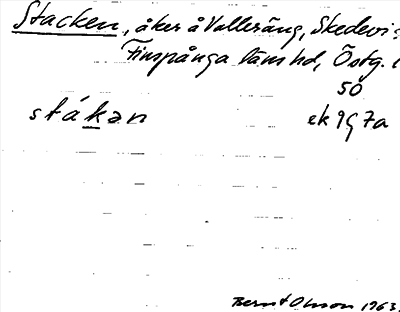 Stacken, åker å Valleräng, Skedevi s
Finspånga läns hd, Östg. l
50
stákan ek 9G 7a
Bernt Olsson 1963.